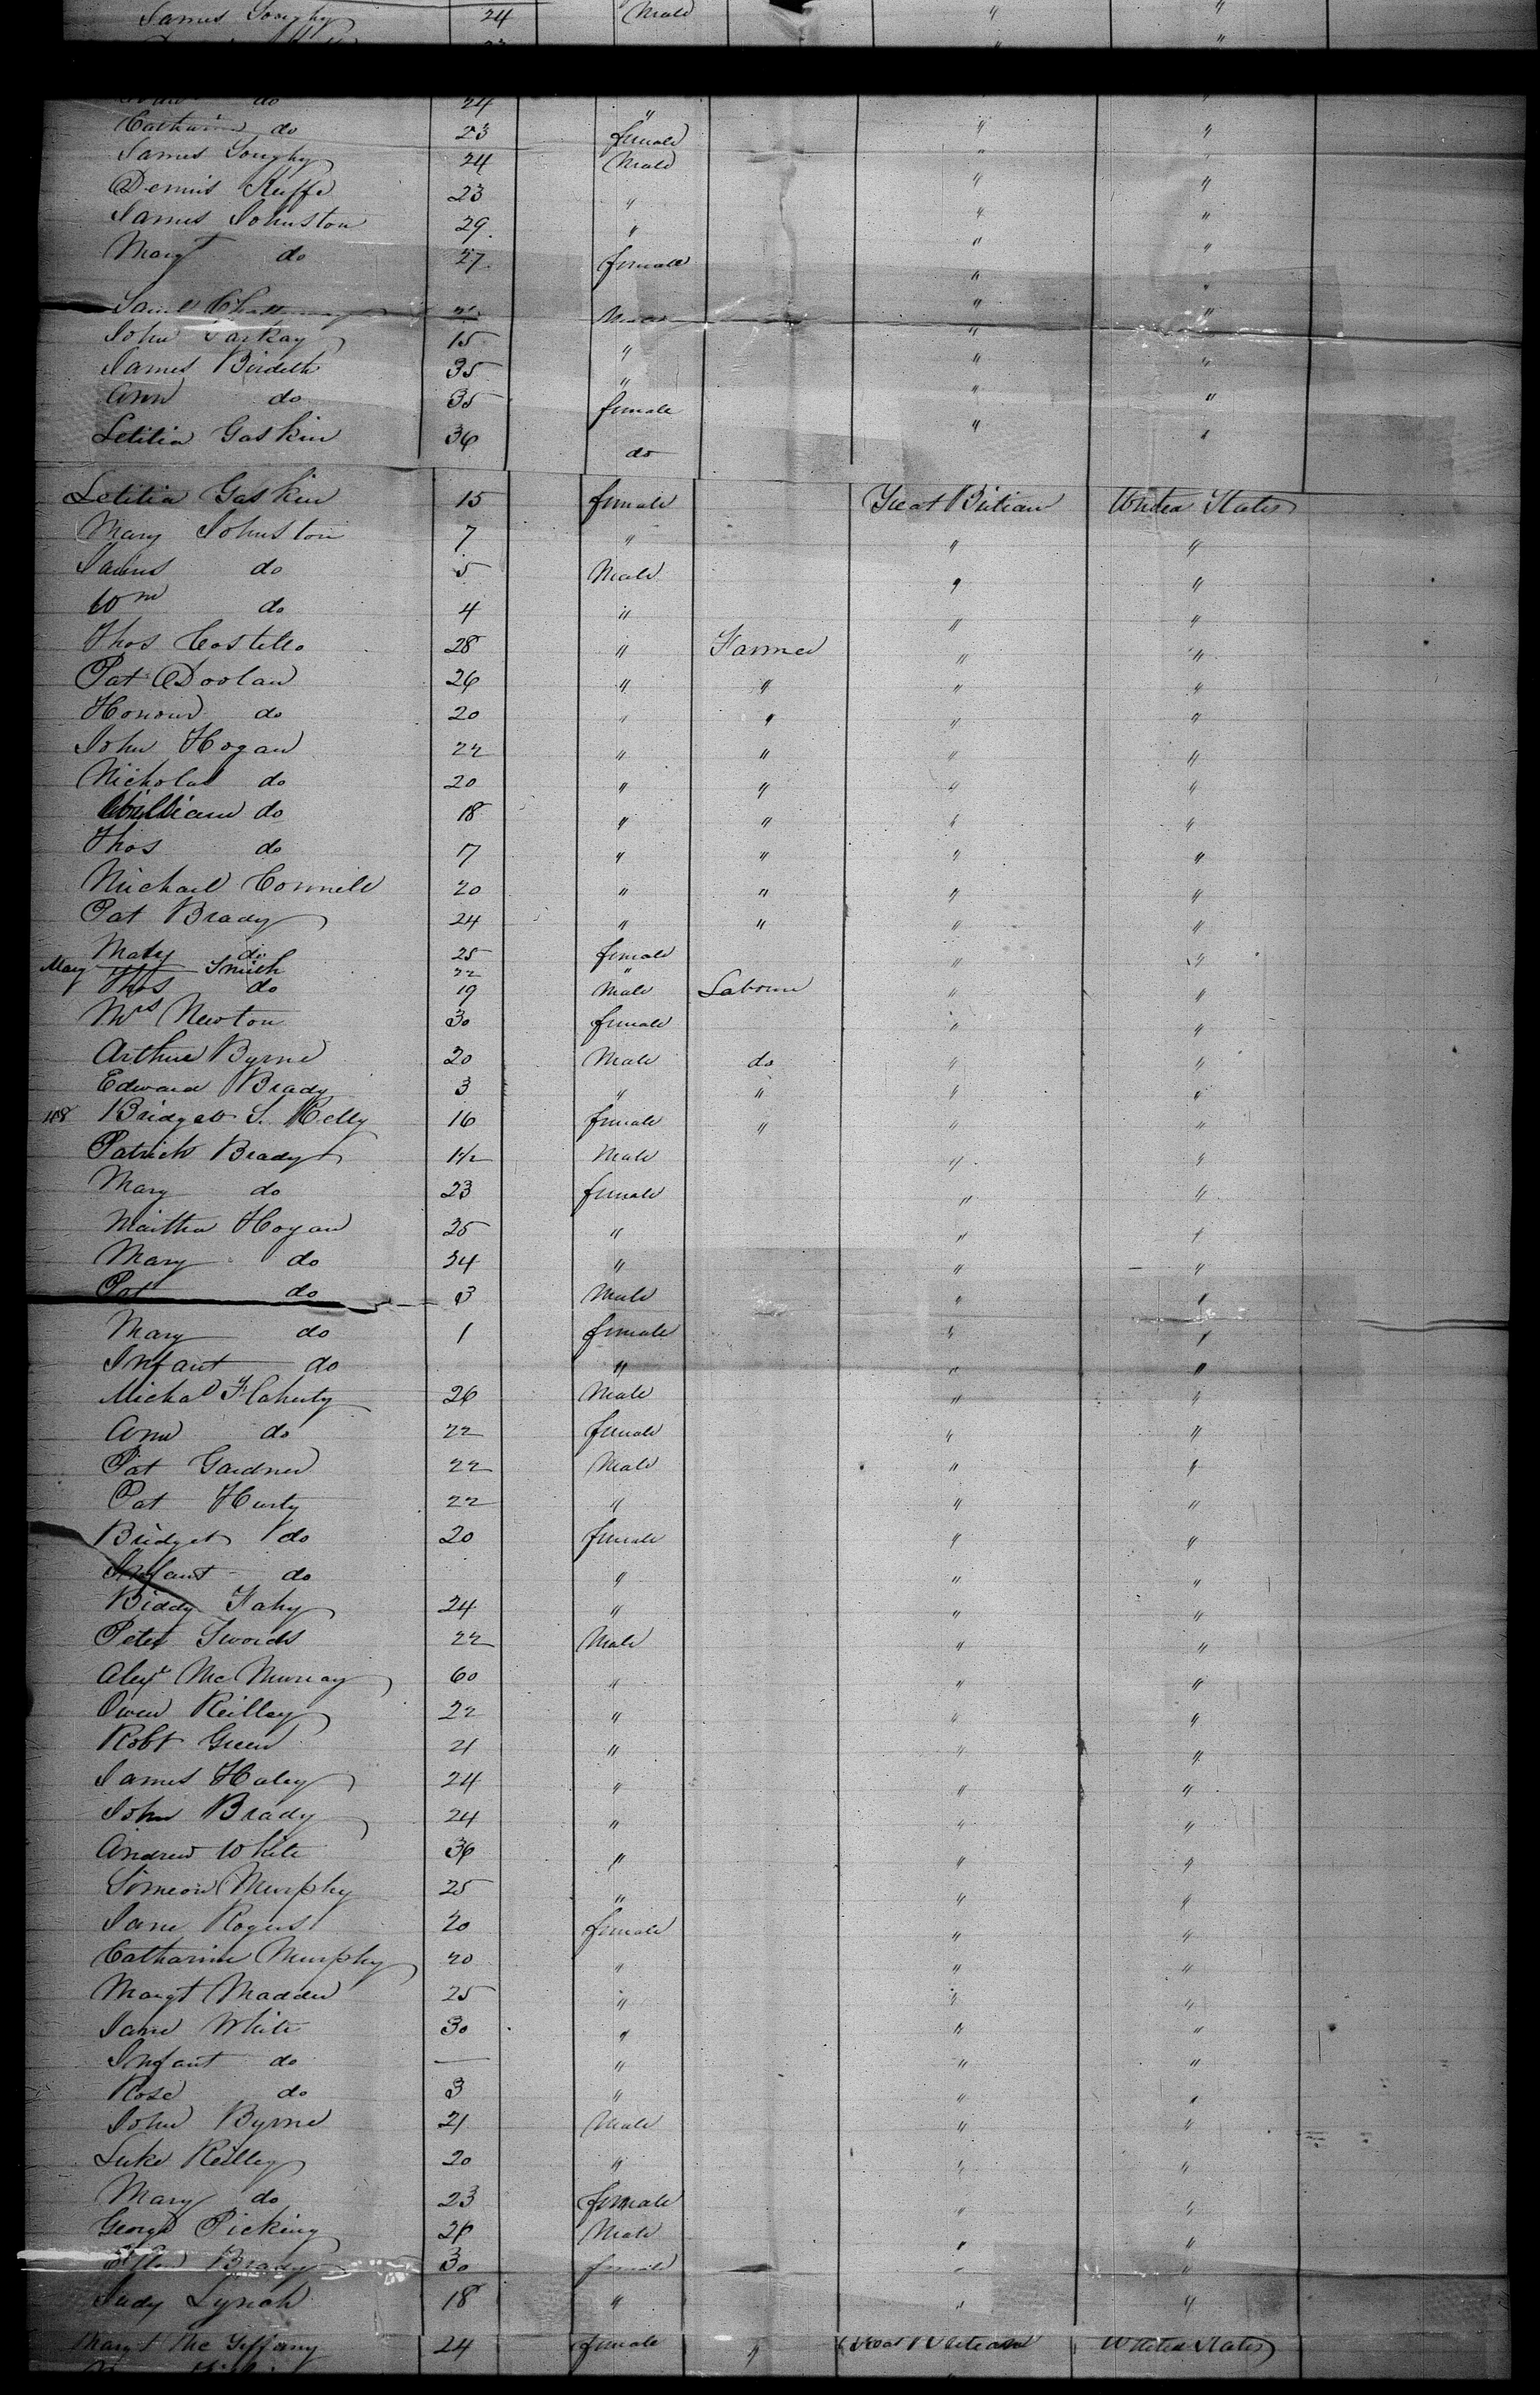 James 24 Male " "
do 24 " "
Catharine do 23 female " "
James 24 Male "
Dennis Keiffe 23 " " "
James Johnston 29 " " "
Margt do 27 female " "
Saml " "
John 15 " " "
James 35 " " "
Ann do 35 female " "
Letitia Gaskin 36 do " "
Letitia Gaskin 15 female Great Britian United States
Mary Johnston 7 " " "
James do 5 Male " "
Wm do 4 " " "
Thos Costello 28 " Farmer " "
Pat Doolan 26 " " " "
Honour do 20 " " " "
John Hogan 22 " " " "
Nicholas do 20 " " " "
William do 18 " " " "
Thos do 17 " " " "
Michael Connell 20 " " " "
Pat Brady 24 " " " "
Mary do 25 female " "
Mary Smith 22 "
Thos do 19 Male Laborer " "
Mrs Newton 30 female " "
Arthur Byrne 20 Male do " "
Edward Brady 3 " " " "
Bridget S. Kelly 16 female " " "
Patrick Brady 1 1/2 Male " "
Mary do 23 female " "
Martha Hogan 25 " " "
Mary do 34 " " "
Pat do 3 Male " "
Mary do 1 female " "
Infant do " " "
Michal Flaherty 26 Male " "
Ann do 22 female " "
Pat Gardner 22 Male " "
Pat Hurty 22 " " "
Bridget do 20 female " "
Infant do " " "
Biddy Fahy 24 " " "
Peter Swords 22 Male " "
Alexr McMurray 60 " " "
Owen Reilley 22 " " "
Robt Green 21 " " "
James Haley 24 " " "
John Brady 24 " " "
Andrew White 36 " " "
Simeon Murphy 25 " " "
Jane Rogers 20 female " "
Catharine Murphy 20 " " "
Margt Madden 25 " " "
Jane White 30 " " "
Infant do — " " "
Rose do 3 " " "
John Byrne 21 Male " "
Luke Reilley 20 " " "
Mary do 23 female " "
George Picking 26 Male " "
Brady 30 female " "
Judy Lynch 18 " " "
Margt Mc 24 female " Great Britian United States